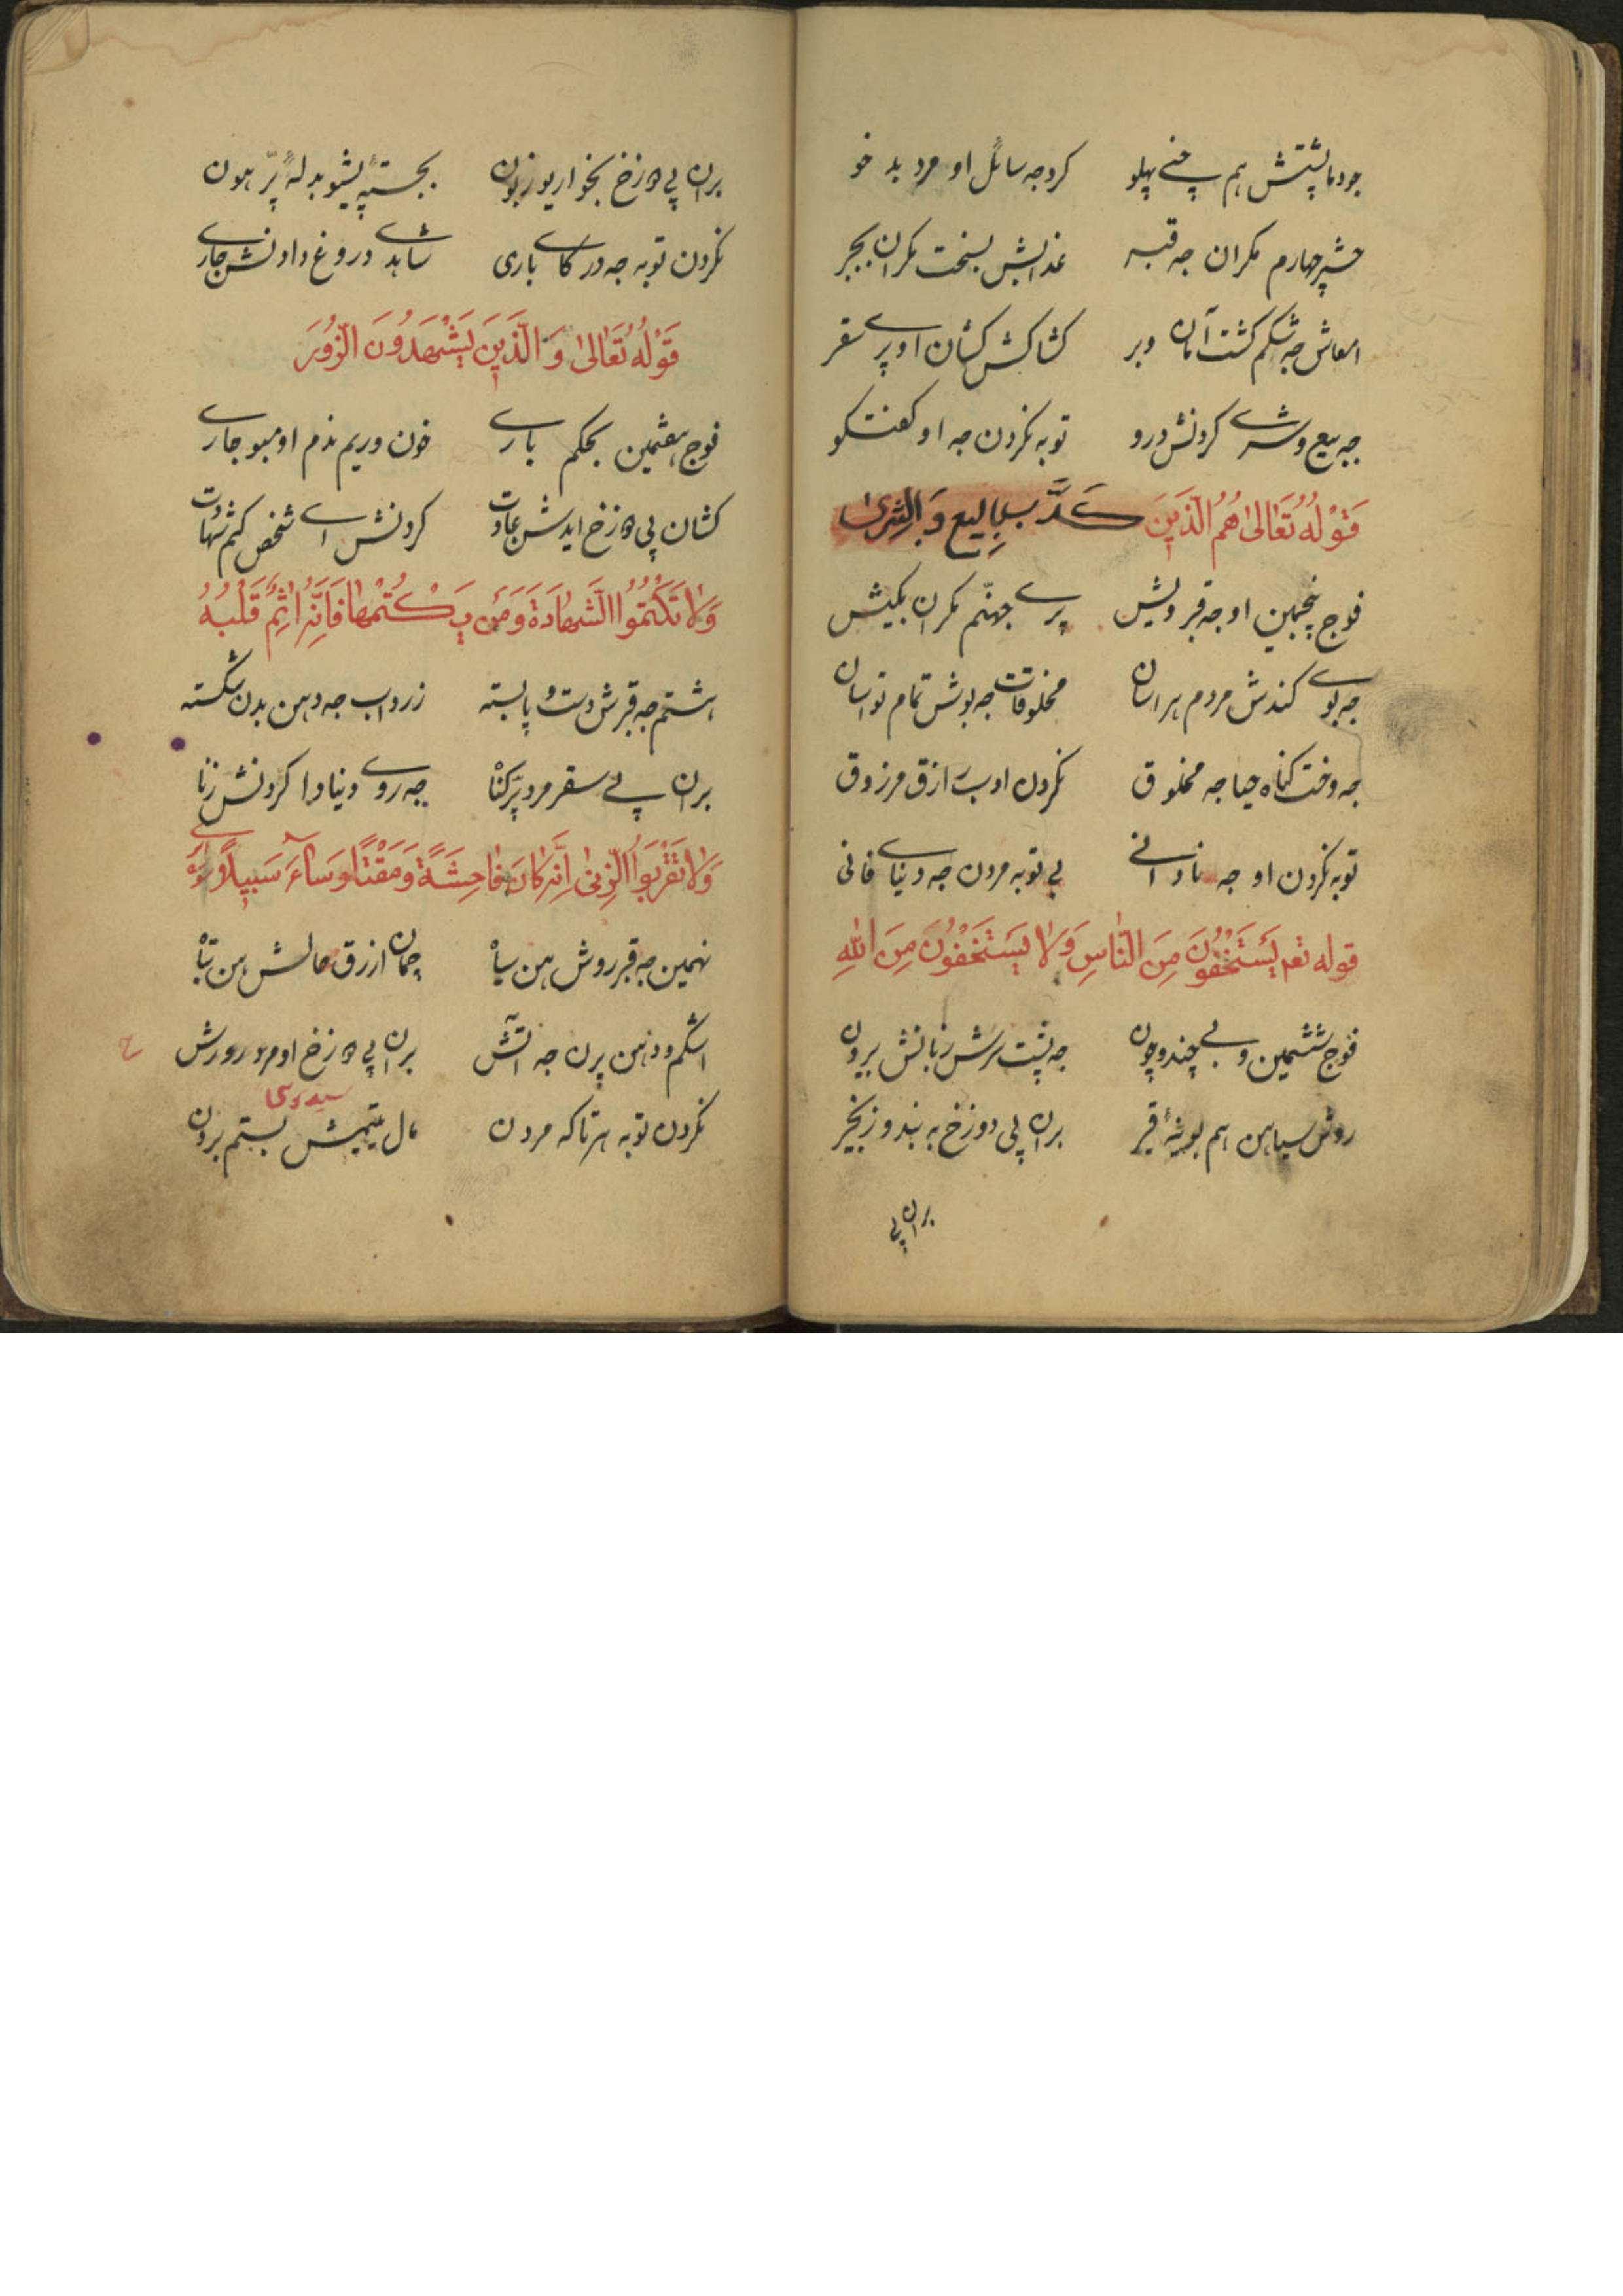 جودما پشتش هم چنے پهلو کروجه سائل او مرد بد خو
حشر چهارم مکران جه قبر عذابش بسخت مکران بجبر
امعاش جه شکم کشت آمان وبر کشاکش کشان او پرے سقر
جه بیع و شرے کردنش درو توبه نکردن جه او کفتکو
قَوْلُهُ تَعَالىٰ هُمُ الَّذينَ كَذَّ بِالبيع وَالشِرىٰ
فوج پنجمین او جه قبر ویش پرے جهنّم مکران بکیش
جه بوے کندش مردم هراسان مخلوقات جه بوش تمام تواسان
جه وخت کناه حیا جه مخلوق نکردن ادب ازق مرزوق
توبه نکردن او جه نادانے بی توبه مردن جه دنیاے فانی
قوله تعم يَسْتَخْفُونَ مِنَ النّاسِ وَلا يَسْتَخْفُونَ مِنَ اللهِ
فوج ششمین و بے چند و چون جه پشت سرش زبانش برون
روش سیاهن هم بوینهٔ قیر بران پی دوزخ به بند و زنجیر
بران پی
بران پی دوزخ بخواری و زبون بجستهٔ پیشو بدلهٔ پرّ هون
نکردن توبه جه درکاے باری شاهدے دروغ دادنش جارے
قَوْلُهُ تَعَالىٰ وَالَّذينَ يَشْهَدُونَ الزُّورَ
فوج هفتمین بحکم بارے خون و ریم مذم او مبو جارے
کشان پی دوزخ ایدش عادت کردنش اے شخص کتم شهادت
وَلا تَكْتُمُوا الشَّهادَةَ وَمَنْ يَكْتُمْها فَإنَّهُ اٰثِمٌ قَلْبُهُ
هشتم جه قبرش دست و پا بسته زرداب جه دهن بدن شکسته
بران پے سقر مرد پرکناْ جه روے دنیا دا کردنش زنا
وَلا تَقْرَبُوا الزِّنىٰ اِنَّهُ كانَ فاحِشَةً وَمَقْتًا وَساءَ سَبيلاً
نهمین جه قبر روش هن سیاْ چمان ازرق حالش هن تباْ
اشکم و ذهن پرن جه آتش بران پی دوزخ او مرد رورش
سیه روی
نکردن توبه هر تا که مردن مال یتیمش بستم بردن